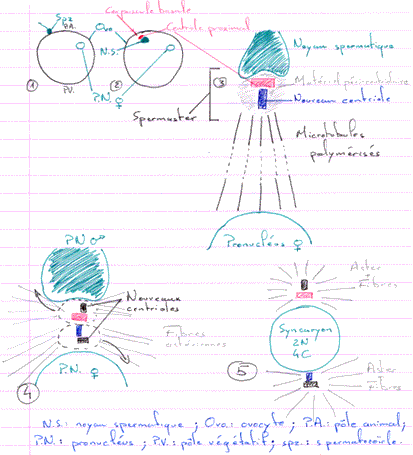 Corpuscule basale
Centriole proximal
Spz
P.A.
Ovo
N.S.
P.V.
P.N ♀
1
2
3
Noyau spermatique
Matériel péricentriolaire
Nouveau centriole
Spermaster
Microtubules
polymérisés
Pronucléus ♀
PN ♂
Nouveaux
centrioles
Fibres
astériennes
P.N. ♀
4
Aster
Fibres
Syncaryon
2N
4C
5
Aster
Fibres
N.S.: noyau spermatique ; Ovo: ovocyte ; P.A.: pôle animal;
P.N.: pronucléus ; P.V.: pôle végétatif ; spz.: spermatozoïde.